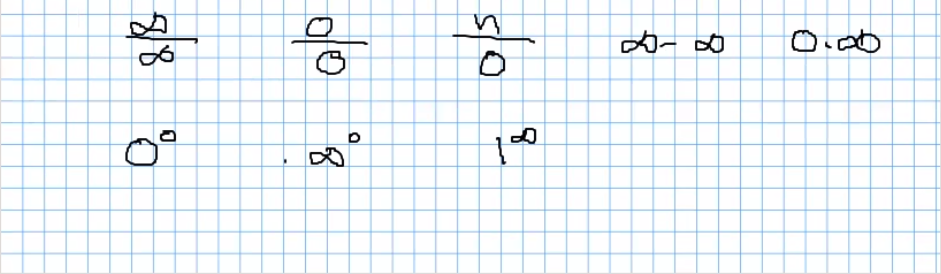 ∞/∞ 0/0 n/0 ∞-∞ 0.∞
0⁰ . ∞⁰ 1^∞